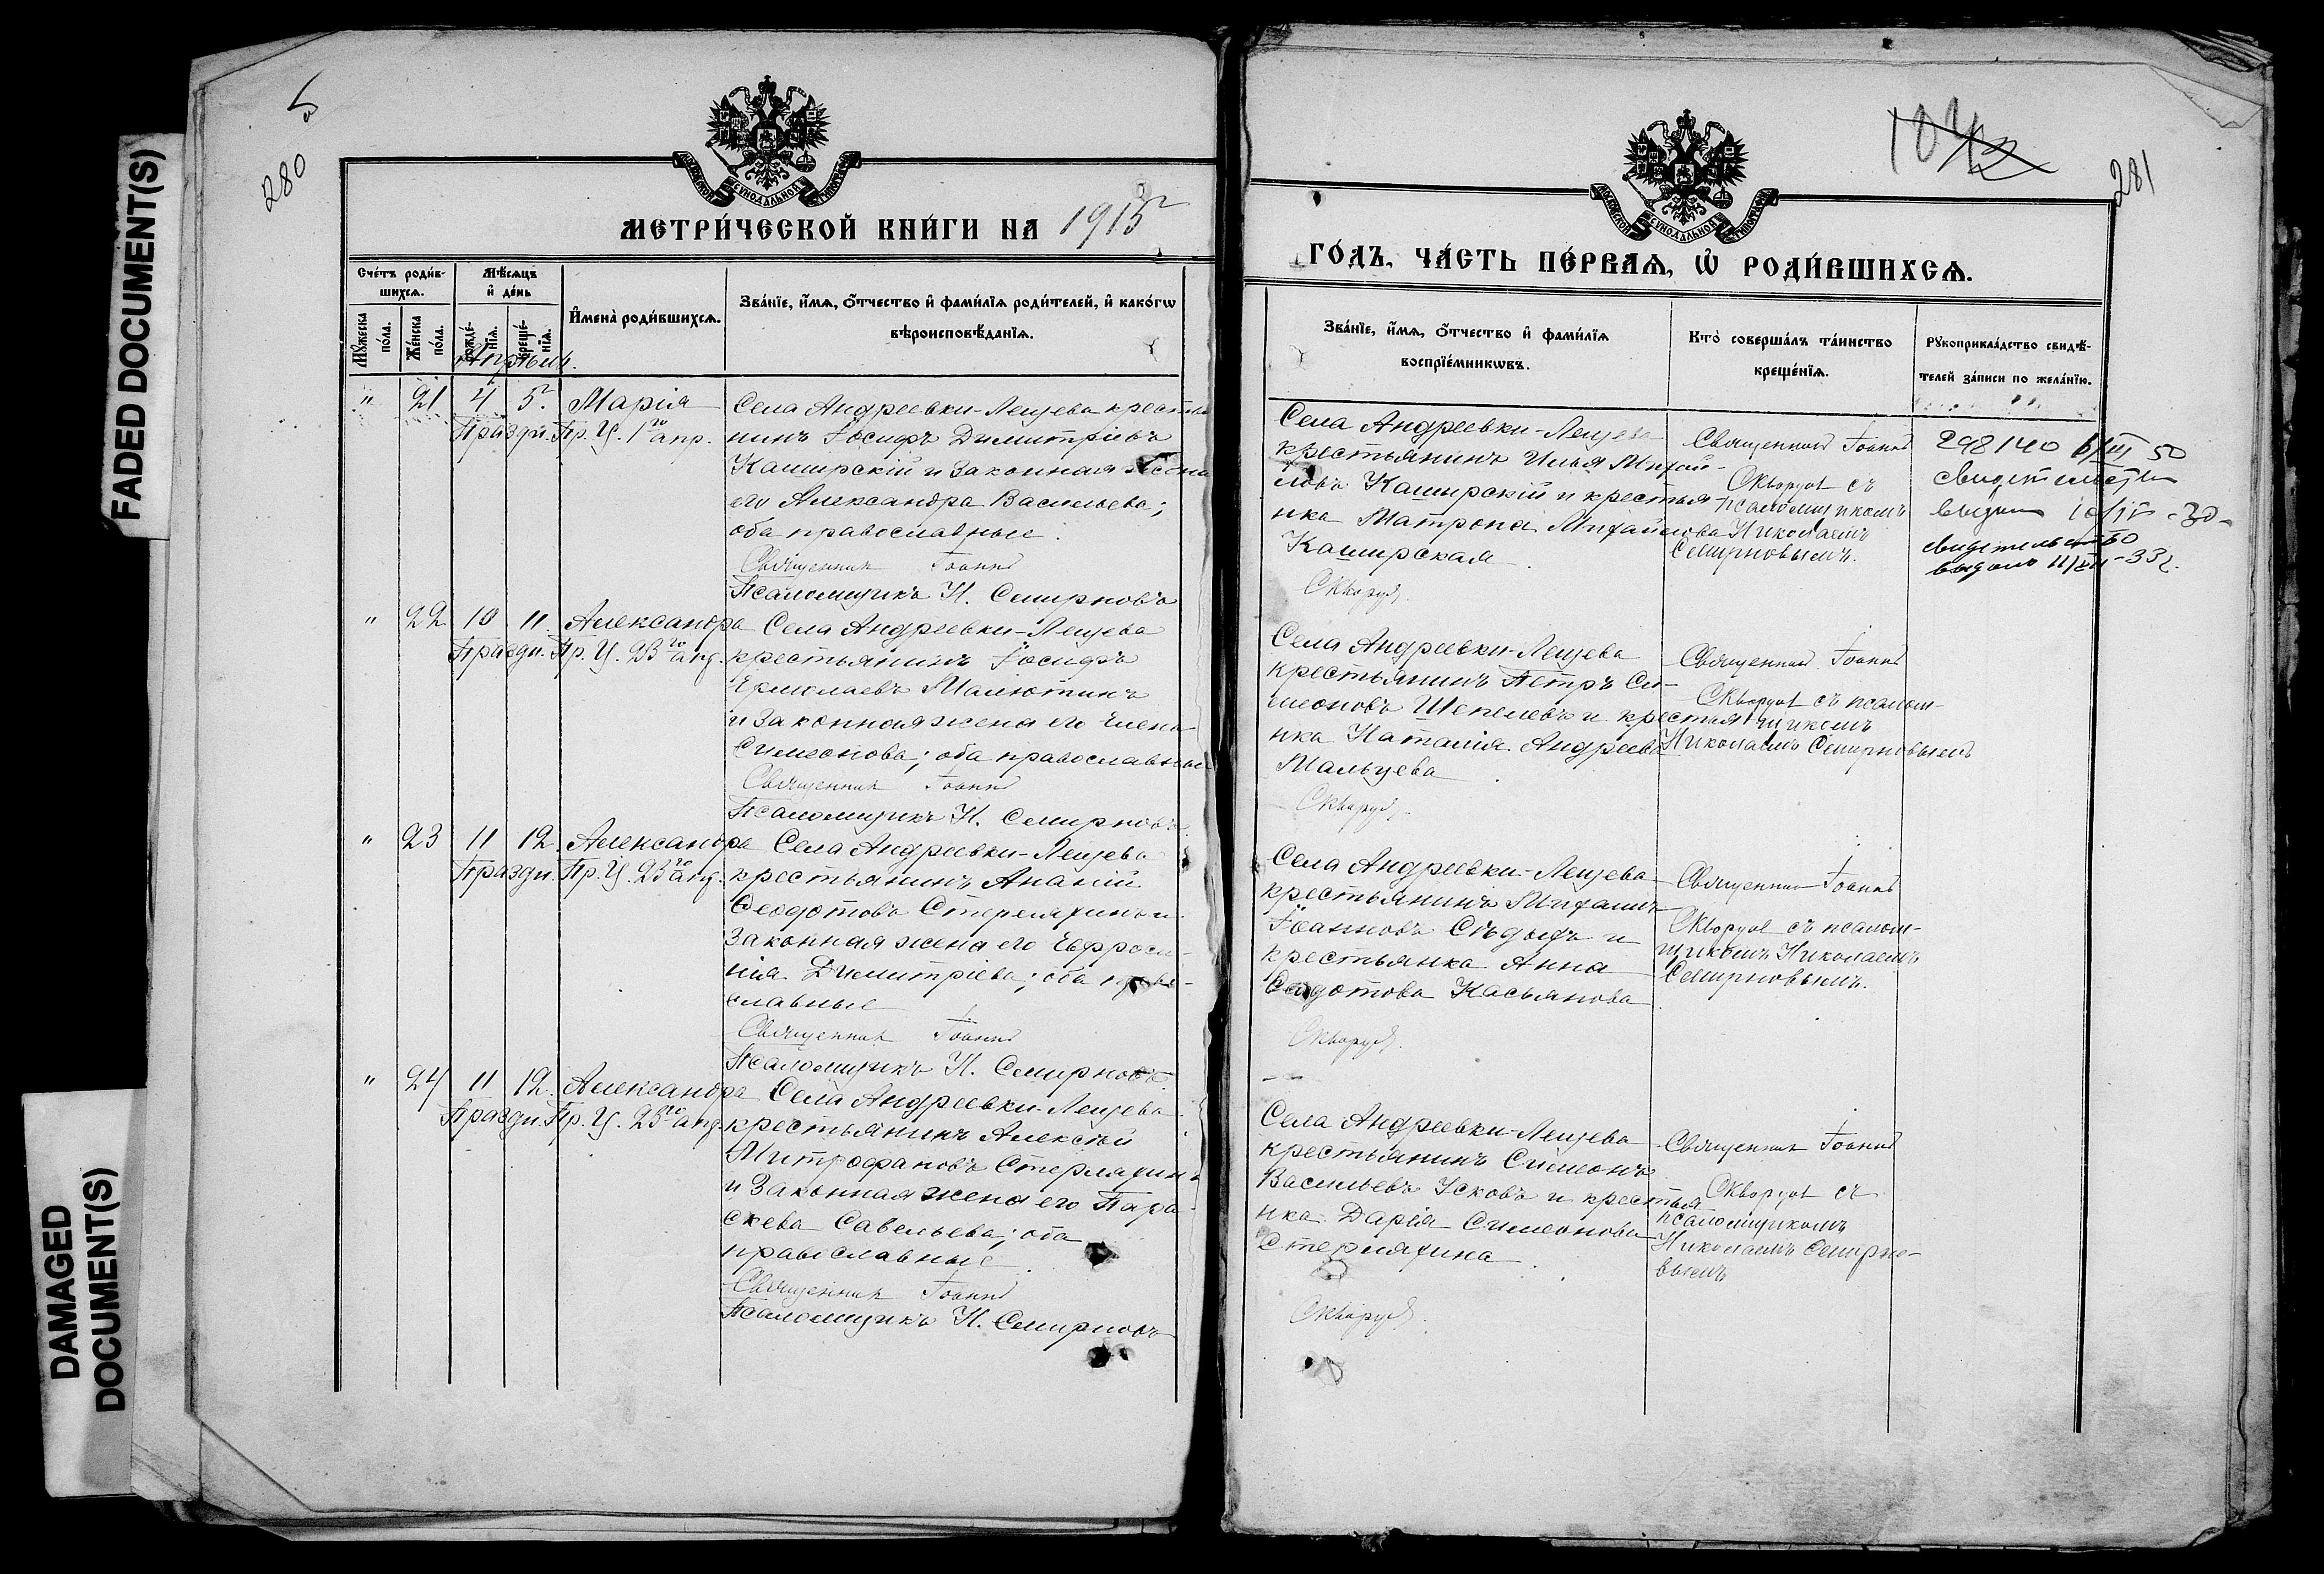 FADED DOCUMENT(S)
DAMAGED
DOCUMENT(S)
5
280
МОСКОВСКОЙ СѴНОДАЛЬНОЙ ТИПОГРАФІИ
МЕТРИ́ЧЕСКОЙ КНИ́ГИ НА 1915
Сче́тъ роди́в-
шихсѧ.
Мѣ́сѧцъ
и҆ де́нь
И҆мена̀ роди́вшихсѧ.
Зва́нїе, и҆́мѧ, ѻ҆́тчество и҆ фами́лїѧ роди́телей, и҆ како́гѡ
вѣроисповѣ́данїѧ.
Мꙋ́жеска
по́ла.
Же́нска
по́ла.
рожде́-
нїѧ.
креще́-
нїѧ.
Апрѣль.
" 21 4 5. Марія
Праздн. Пр. Ц. 1го апр.
Села Андреевки-Лещева крестья
нинъ Іосифъ Димитріевъ
Каширскій и законная жена
его Александра Васильева;
оба православные.
Священник Іоанн
Псаломщикъ Н. Смирновъ
" 22 10 11. Александра
Праздн. Пр. Ц. 23го апр.
Села Андреевки-Лещева
крестьянинъ Іосифъ
Ермолаевъ Малютинъ
и законная жена его Елена
Симеонова; оба православные
Священник Іоанн
Псаломщикъ Н. Смирновъ.
" 23 11 12. Александра
Праздн. Пр. Ц. 23го апр.
Села Андреевки-Лещева
крестьянинъ Ананій
Ѳеодотовъ Стерляхинъ и
законная жена его Евфроси-
нія Димитріева; оба право-
славные
Священник Іоанн
Псаломщикъ Н. Смирновъ.
" 24 11 12. Александра
Праздн. Пр. Ц. 23го апр.
Села Андреевки-Лещева
крестьянинъ Алексѣй
Митрофановъ Стерляхинъ
и законная жена его Пара-
скева Савельева; оба
православные.
Священник Іоанн
Псаломщикъ Н. Смирновъ
281
МОСКОВСКОЙ СѴНОДАЛЬНОЙ ТИПОГРАФІИ
ГО́ДЪ, ЧА́СТЬ ПЕ́РВАѦ, Ѡ҆ РОДИ́ВШИХСѦ.
Зва́нїе, и҆́мѧ, ѻ҆́тчество и҆ фами́лїѧ
воспрїе́мникѡвъ.
Кто̀ соверша́лъ та́инство
креще́нїѧ.
Рꙋкоприкла́дство свидѣ́-
телей за́писи по жела́нїю.
Села Андреевки-Лещева
крестьянинъ Илья Михай-
ловъ Каширскій и крестья
нка Матрона Михайлова
Каширская.
Скворцов.
Священник Іоанн
Скворцов съ
псаломщикомъ
Николаемъ
Смирновымъ.
298140 6/III 50
свидетельство
выдано 10/IV-30.
свидетельство
выдано 11/XII-33г.
Села Андреевки-Лещева
крестьянинъ Петръ Си-
меоновъ Шепелевъ и крестья
нка Наталія Андреева
Мальцева.
Скворцов.
Священник Іоанн
Скворцов съ псалом-
щикомъ
Николаемъ Смирновымъ
Села Андреевки-Лещева
крестьянинъ Михаилъ
Іоанновъ Сѣдыхъ и
крестьянка Анна
Ѳедотова Касьянова
Скворцов.
Священник Іоанн
Скворцов съ псалом-
щикомъ Николаемъ
Смирновымъ.
Села Андреевки-Лещева
крестьянинъ Симеонъ
Васильевъ Усковъ и крестья
нка Дарія Симеонова
Стерляхина.
Скворцов.
Священник Іоанн
Скворцов съ
псаломщикомъ
Николаемъ Смирно-
вымъ